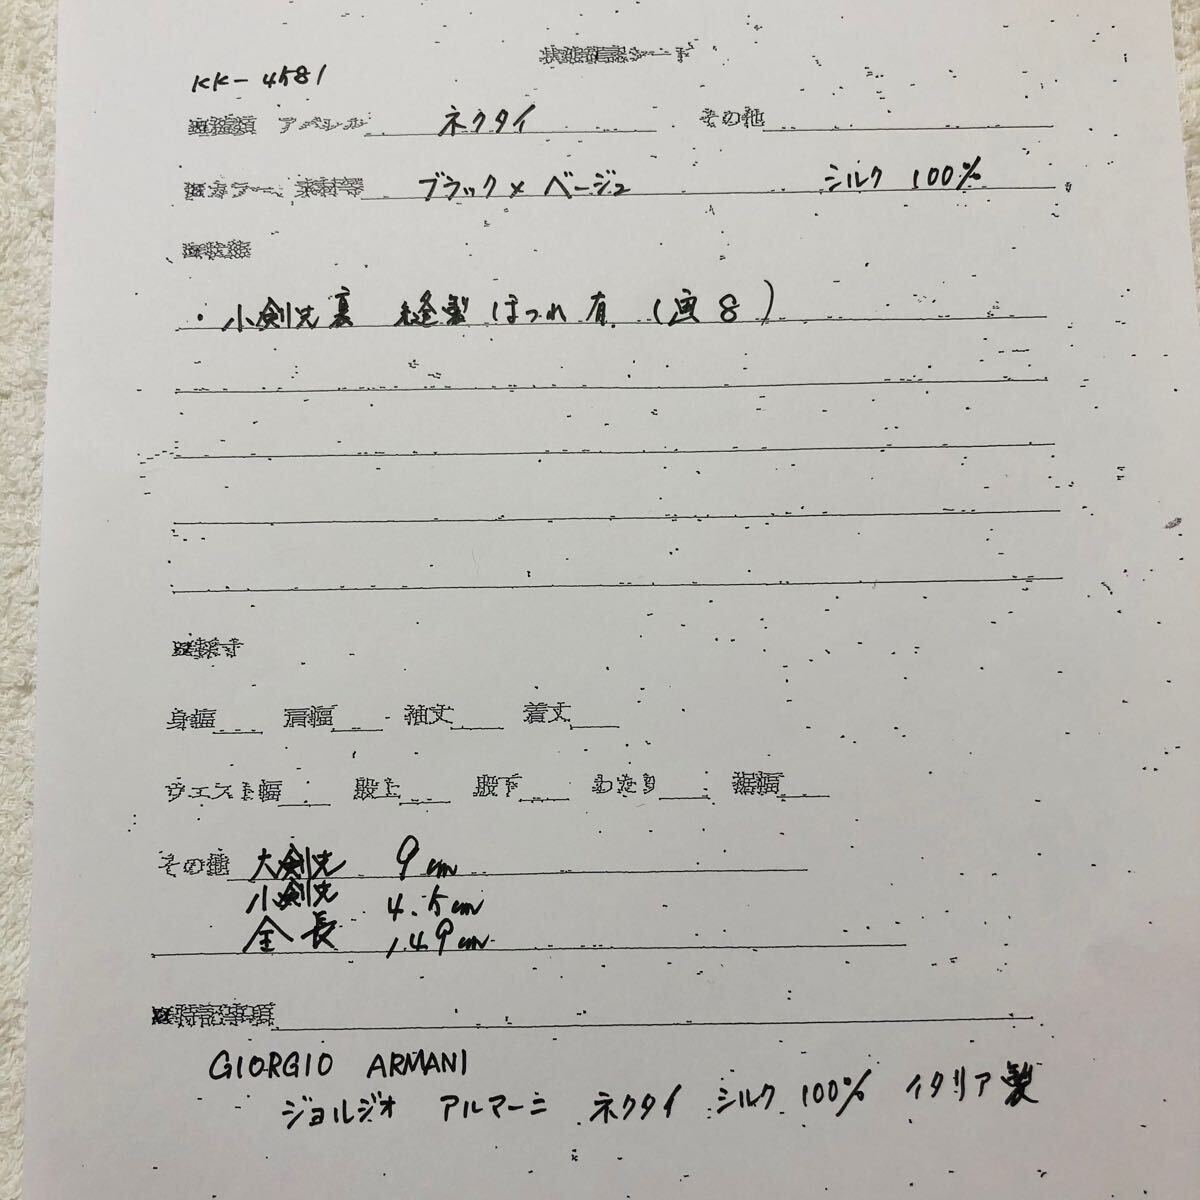 状態確認シート
KK-4581
■種類 アパレル ネクタイ その他
■カラー、素材等 ブラック×ベージュ シルク 100%
■状態
・小剣先裏 縫製ほつれ有 (画8)
■採寸
身幅 肩幅 袖丈 着丈
ウエスト幅 股上 股下 わたり 裾幅
その他 大剣先 9cm
小剣先 4.5cm
全長 149cm
■特記事項
GIORGIO ARMANI
ジョルジオ アルマーニ ネクタイ シルク 100% イタリア製